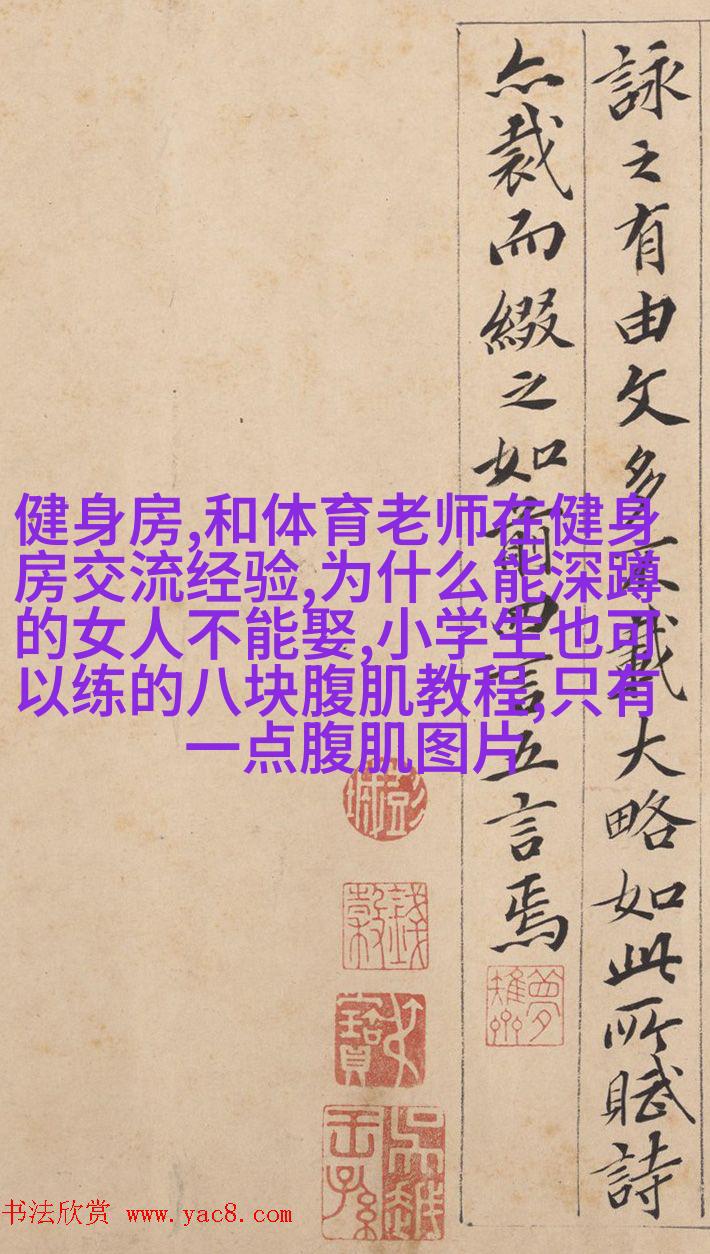 詠之有由文多不載大略如此所賦詩
亦裁而綴之如前四言五言焉
健身房,和体育老师在健身
房交流经验,为什么能深蹲
的女人不能娶,小学生也可
以练的八块腹肌教程,只有
一点腹肌图片
书法欣赏 www.yac8.com